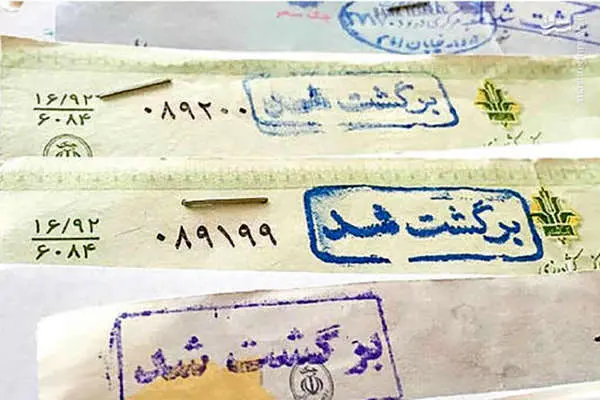 برگشت شد
۱۶/۹۲
۶۰۸۴
۰۸۹۲۰۰
برگشت شد
۱۶/۹۲
۶۰۸۴
۰۸۹۱۹۹
برگشت شد
برگشت شد